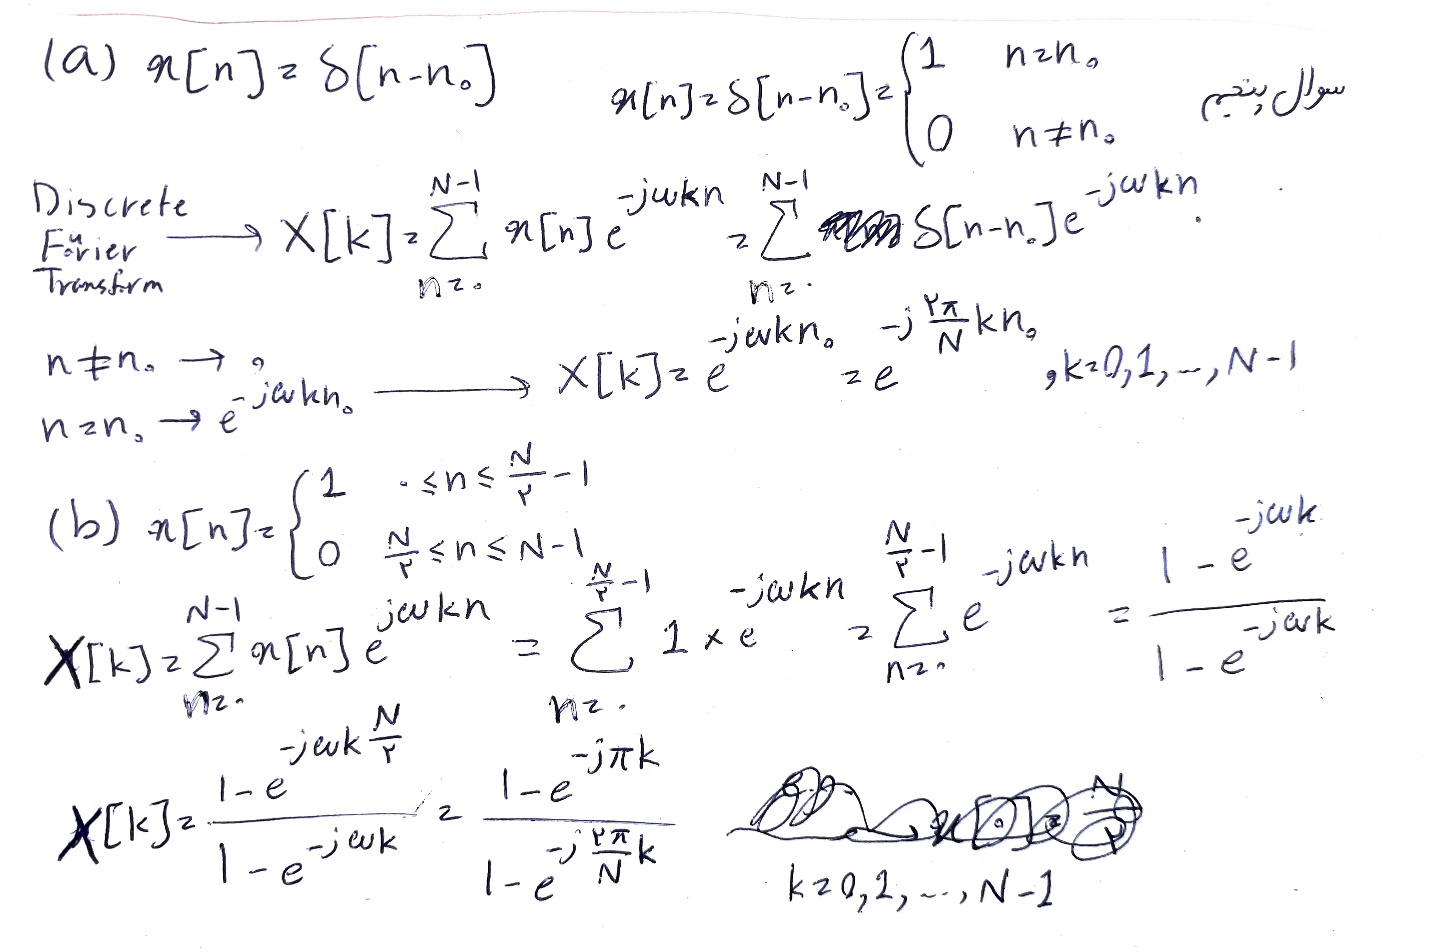 (a) x[n] = δ[n-n₀] x[n] = δ[n-n₀] = { 1 n=n₀ سوال پنجم
0 n≠n₀
Discrete Fourier Transform → X[k] = Σ_{n=0}^{N-1} x[n] e^{-jωkn} = Σ_{n=0}^{N-1} δ[n-n₀] e^{-jωkn}
n≠n₀ → 0
n=n₀ → e^{-jωkn₀} → X[k] = e^{-jωkn₀} = e^{-j\frac{۲π}{N}kn₀} , k=0,1,...,N-1
(b) x[n] = { 1 ۰≤n≤\frac{N}{۲}-1
0 \frac{N}{۲}≤n≤N-1
X[k] = Σ_{n=۰}^{N-1} x[n] e^{jωkn} = Σ_{n=۰}^{\frac{N}{۲}-1} 1×e^{-jωkn} = Σ_{n=۰}^{\frac{N}{۲}-1} e^{-jωkn} = \frac{1-e^{-jωk}}{1-e^{-jωk}}
X[k] = \frac{1-e^{-jωk\frac{N}{۲}}}{1-e^{-jωk}} = \frac{1-e^{-jπk}}{1-e^{-j\frac{۲π}{N}k}}
k=0,1,...,N-1